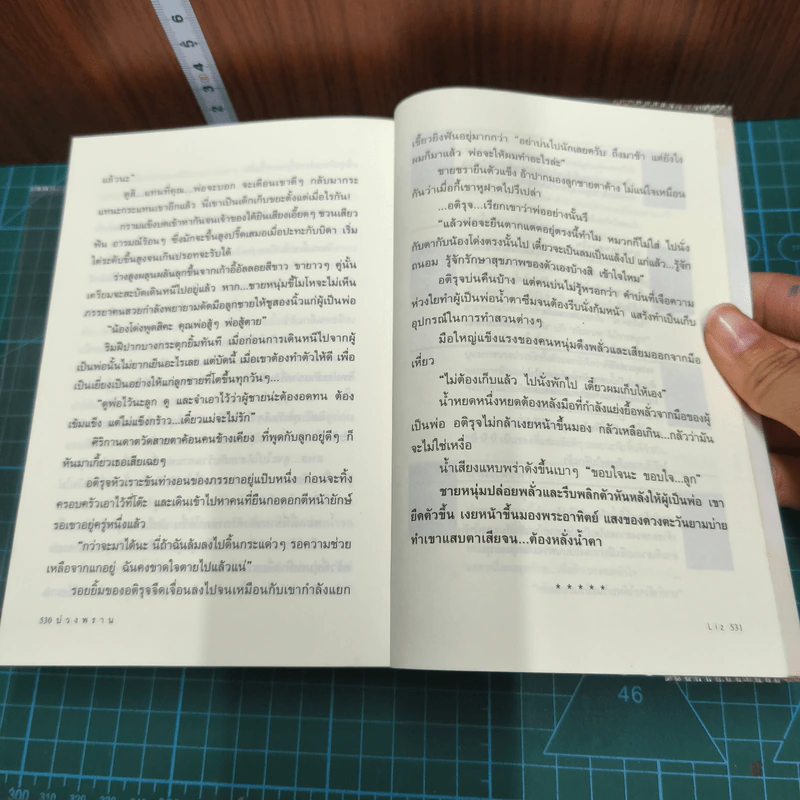 แล้วนะ"
ดูสิ...แทนที่คุณ...พ่อจะบอก จะเตือนเขาดีๆ กลับมากระ
แทนะกระแทนเขาอีกแล้ว นี่เขาเป็นเด็กเก็บขยะตั้งแต่เมื่อไรกัน!
กรามแข็งบดเข้าหากันจนเจ้าของได้ยินเสียงเอี๊ยดๆ ชวนเสียว
ฟัน อารมณ์ร้อนๆ ซึ่งมักจะขึ้นสูงปรี๊ดเสมอเมื่อปะทะกับบิดา เริ่ม
ไต่ระดับขึ้นสูงจนเกินปรอทจะรับได้
ร่างสูงผลุนผลันลุกขึ้นจากเก้าอี้อัลลอยสีขาว ขายาวๆ คู่นั้น
เตรียมจะสะบัดเดินหนีไปอยู่แล้ว หาก...ชายหนุ่มขี้โมโหจะไม่เห็น
ภรรยาคนสวยกำลังพยายามดัดมือลูกชายให้ชูสองนิ้วแก่ผู้เป็นพ่อ
"น้องโด่งพูดสิคะ คุณพ่อสู้ๆ พ่อสู้ตาย"
ริมฝีปากบางกระตุกยิ้มทันที เมื่อก่อนการเดินหนีไปจากผู้
เป็นพ่อนั้นไม่ยากเย็นอะไรเลย แต่บัดนี้ เมื่อเขาต้องทำตัวให้ดี เพื่อ
เป็นเยี่ยงเป็นอย่างให้แก่ลูกชายที่โตขึ้นทุกวันๆ...
"ดูพ่อไว้นะลูก ดู และจำเอาไว้ว่าผู้ชายน่ะต้องอดทน ต้อง
เข้มแข็ง แต่ไม่แข็งกร้าว...เดี๋ยวแม่จะไม่รัก"
ศิริกานดาตวัดสายตาค้อนคนข้างเคียง ที่พูดกับลูกอยู่ดีๆ ก็
หันมาเกี้ยวเธอเสียเฉยๆ
อติรุจหัวเราะขันท่างอนของภรรยาอยู่แป๊บหนึ่ง ก่อนจะทิ้ง
ครอบครัวเอาไว้ที่โต๊ะ และเดินเข้าไปหาคนที่ยืนกอดอกตีหน้ายักษ์
รอเขาอยู่ครู่หนึ่งแล้ว
"กว่าจะมาได้นะ นี่ถ้าฉันล้มลงไปดิ้นกระแด่วๆ รอความช่วย
เหลือจากแกอยู่ ฉันคงขาดใจตายไปแล้วแน่"
รอยยิ้มของอติรุจจืดเจื่อนลงไปจนเหมือนกับเขากำลังแยก
530 บ่วงพราน
เขี้ยวยิงฟันอยู่มากกว่า "อย่าบ่นไปนักเลยครับ ถึงมาช้า แต่ยังไง
ผมก็มาแล้ว พ่อจะให้ผมทำอะไรล่ะ"
ชายชรายืนตัวแข็ง อ้าปากมองลูกชายตาค้าง ไม่แน่ใจเหมือน
กันว่าเมื่อกี้เขาหูฝาดไปรึเปล่า
...อติรุจ...เรียกเขาว่าพ่ออย่างนั้นรึ
"แล้วพ่อจะยืนตากแดดอยู่ตรงนี้ทำไม หมวกก็ไม่ใส่ ไปนั่ง
กับดากับน้องโด่งตรงนั้นไป เดี๋ยวจะเป็นลมเป็นแล้งไป แก่แล้ว...รู้จัก
ถนอม รู้จักรักษาสุขภาพของตัวเองบ้างสิ เข้าใจไหม"
อติรุจบ่นคืนบ้าง แต่คนบ่นไม่รู้หรอกว่า คำบ่นที่เจือความ
ห่วงใยทำผู้เป็นพ่อน้ำตาซึมจนต้องรีบนั่งก้มหน้า แสร้งทำเป็นเก็บ
อุปกรณ์ในการทำสวนต่างๆ
มือใหญ่แข็งแรงของคนหนุ่มดึงพลั่วและเสียมออกจากมือ
เหี่ยว
"ไม่ต้องเก็บแล้ว ไปนั่งพักไป เดี๋ยวผมเก็บให้เอง"
น้ำหยดหนึ่งหยดต้องหลังมือที่กำลังแย่งยื้อพลั่วจากมือของผู้
เป็นพ่อ อติรุจไม่กล้าเงยหน้าขึ้นมอง กลัวเหลือเกิน...กลัวว่ามัน
จะไม่ใช่เหงื่อ
น้ำเสียงแหบพร่าดังขึ้นเบาๆ "ขอบใจนะ ขอบใจ...ลูก"
ชายหนุ่มปล่อยพลั่วและรีบพลิกตัวหันหลังให้ผู้เป็นพ่อ เขา
ยืดตัวขึ้น เงยหน้าขึ้นมองพระอาทิตย์ แสงของดวงตะวันยามบ่าย
ทำเขาแสบตาเสียจน...ต้องหลั่งน้ำตา
* * * * *
Liz 531
6
5
4
3
2
46
300
310
320
330
340